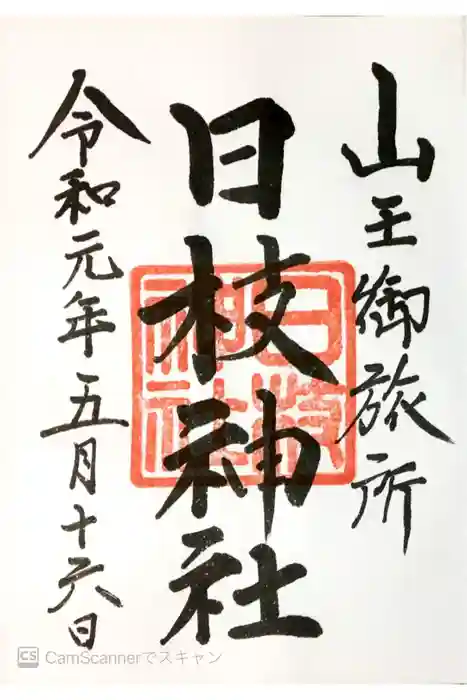 山王御旅所
日枝神社
日枝神社
令和元年五月十六日
CS CamScannerでスキャン